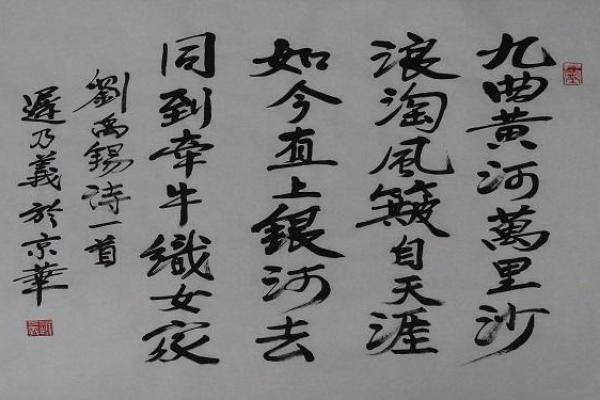 九曲黄河萬里沙
浪淘風簸自天涯
如今直上銀河去
同到牽牛織女家
劉禹錫诗一首
遲乃義於京華